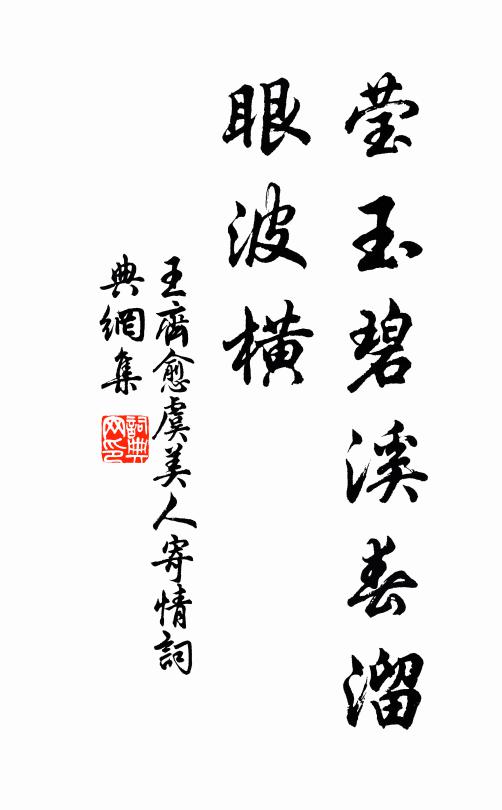 莹玉碧溪春溜
眼波横
王齊愈虞美人寄情詞
典網集
詞典网印